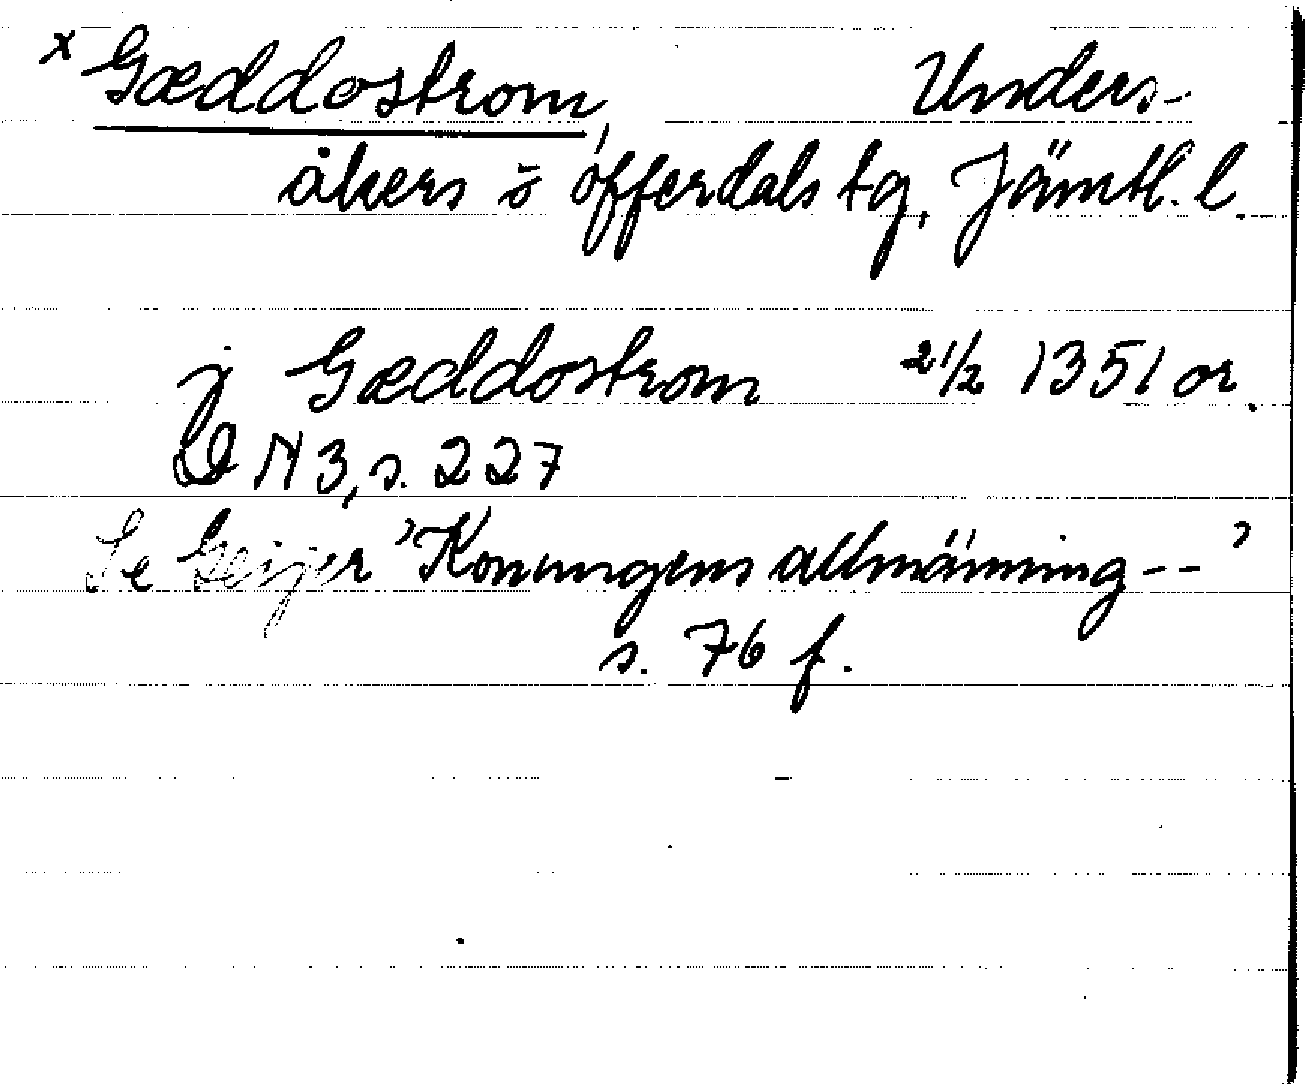 x Gæddostrom, Unders-
åkers o offerdals tg, Jämtl. l.
j Gæddostrom 21/2 1351 or.
DN 3, s. 227
Se Geijer "Konungens allmänning--"
s. 76 f.